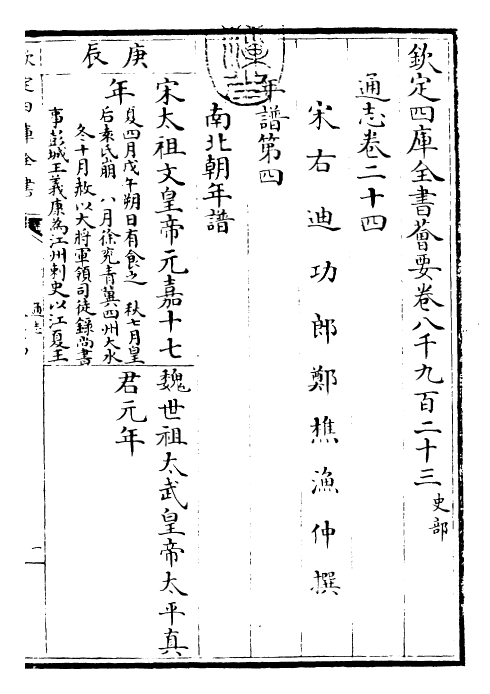 欽定四庫全書薈要卷八千九百二十三 史部
通志卷二十四
宋右迪功郎鄭樵漁仲撰
年譜第四
南北朝年譜
庚辰
宋太祖文皇帝元嘉十七
年
夏四月戊午朔日有食之 秋七月皇
后袁氏崩 八月徐兖青冀四州大水
冬十月赦以大將軍領司徒錄尚書
事彭城王義康為江州刺史以江夏王
魏世祖太武皇帝太平真
君元年
欽定四庫全書
通志